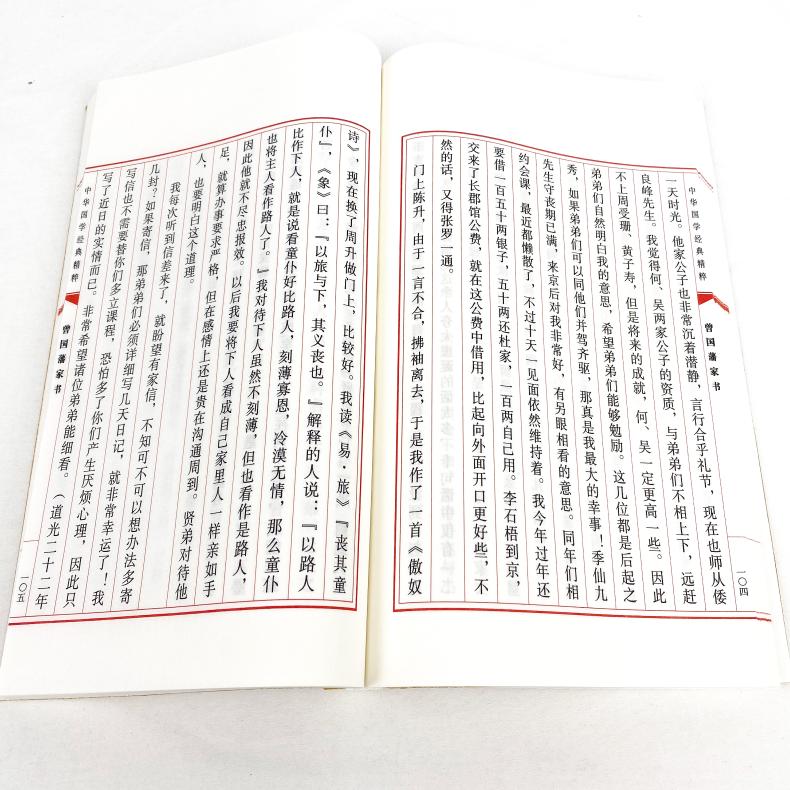 中华国学经典精粹
曾国藩家书
一〇四
一天时光。他家公子也非常沉着潜静，言行合乎礼节，现在也师从倭
良峰先生。我觉得何、吴两家公子的资质，与弟弟们不相上下，远赶
不上周受珊、黄子寿，但是将来的成就，何、吴一定更高一些。因此
弟弟们自然明白我的意思，希望弟弟们能够勉励。这几位都是后起之
秀，如果弟弟们可以同他们并驾齐驱，那真是我最大的幸事！季仙九
先生守丧期已满，来京后对我非常好，有另眼相看的意思。同年们相
约会课，最近都懒散了，不过十天一见面依然维持着。我今年过年还
要借一百五十两银子，五十两还杜家，一百两自己用。李石梧到京，
交来了长郡馆公费，就在这公费中借用，比起向外面开口更好些，不
然的话，又得张罗一通。
门上陈升，由于一言不合，拂袖离去，于是我作了一首《傲奴
诗》，现在换了周升做门上，比较好。我读《易·旅》『丧其童
仆』，《象》曰：『以旅与下，其义丧也。』解释的人说：『以路人
比作下人，就是说看童仆好比路人，刻薄寡恩，冷漠无情，那么童仆
也将主人看作路人了。』我对待下人虽然不刻薄，但也看作是路人，
因此他就不尽忠报效。以后我要将下人看成自己家里人一样亲如手
足，就算办事要求严格，但在感情上还是贵在沟通周到。贤弟对待他
人，也要明白这个道理。
我每次听到信差来了，就盼望有家信，不知可不可以想办法多寄
几封？如果寄信，那弟弟们必须详细写几天日记，就非常幸运了！我
写信也不需要替你们多立课程，恐怕多了你们产生厌烦心理，因此只
写了近日的实情而已。非常希望诸位弟弟能细看。（道光二十二年
中华国学经典精粹
曾国藩家书
一〇五